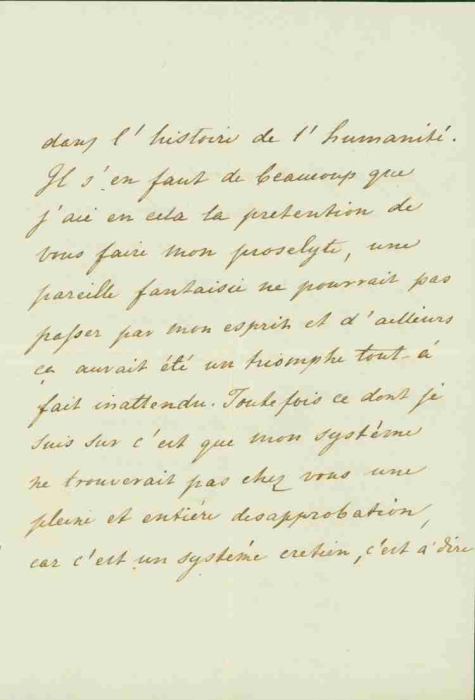 dans l'histoire de l'humanité.
Il s'en faut de beaucoup que
j'aie en cela la pretention de
vous faire mon proselyte, une
pareille fantaisie ne pourrait pas
passer par mon esprit et d'ailleurs
ça aurait été un triomphe tout-à
fait inattendu. Toutefois ce dont je
suis sur c'est que mon système
ne trouverait pas chez vous une
pleine et entière desapprobation,
car c'est un système cretien, c'est à dire